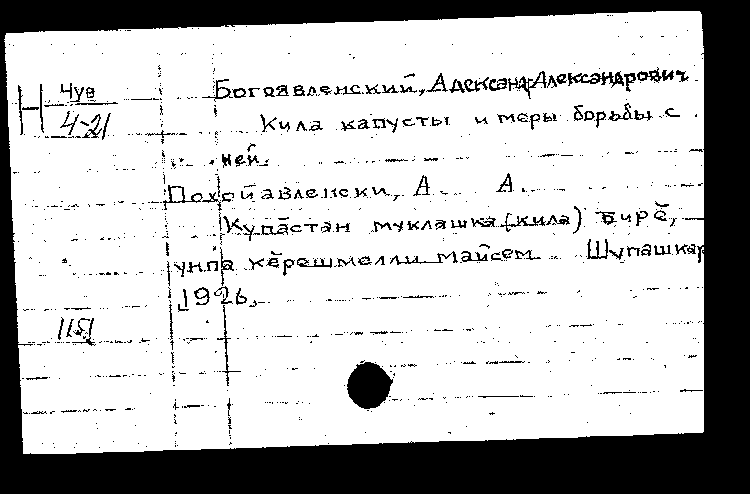 Н Чув
4-21
Богоявленский, Александр Александрович
Кила капусты и меры борьбы с
ней.
Похойавленски, А. А.
Купăстан муклашка (кила) чирĕ,
унпа кĕрешмелли майсем. Шупашкар
1926.
1151